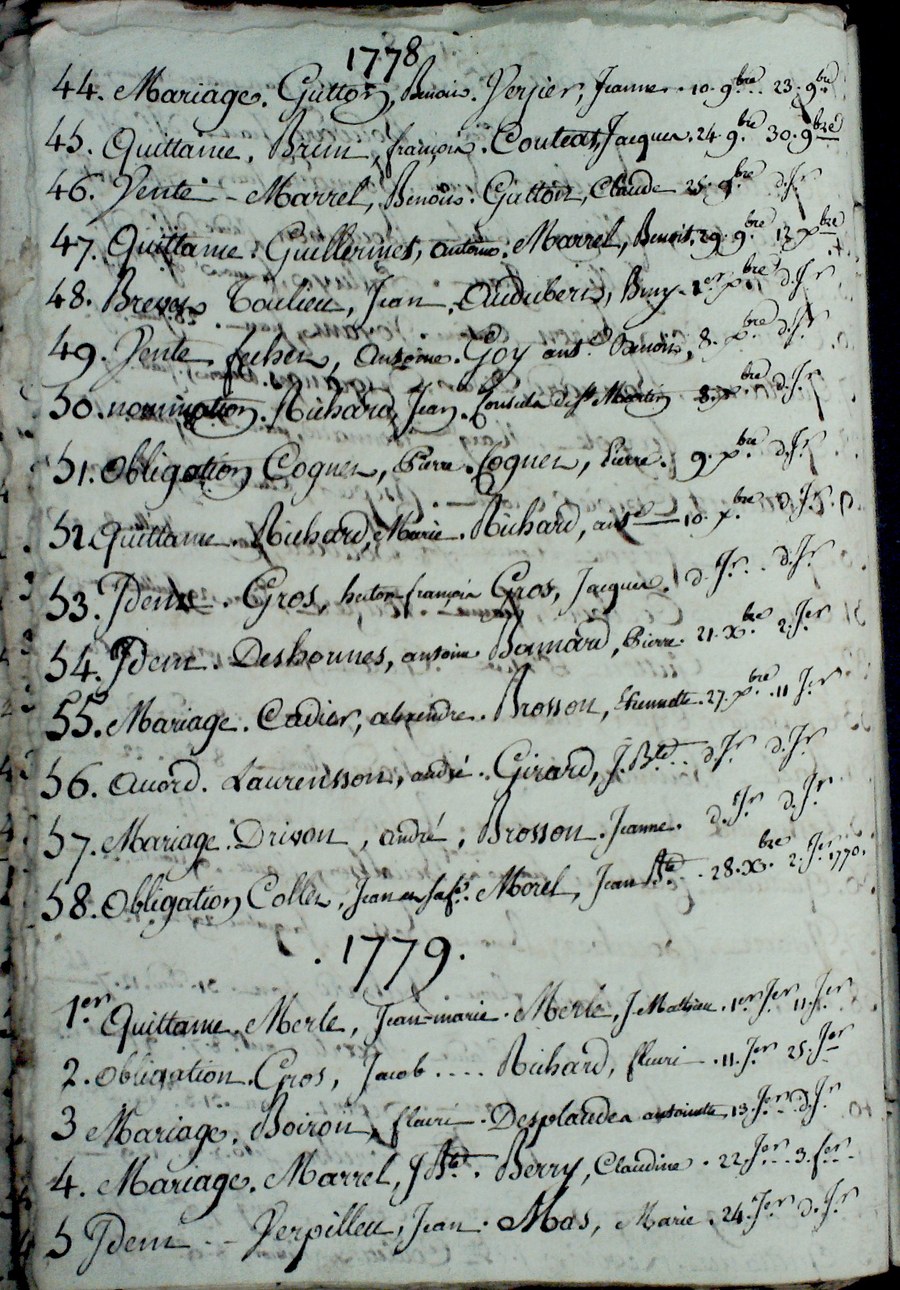 1778
44. Mariage. Gutton, Benois. Verjier, Jeanne. 10. 9bre.. 23. 9bre
45. Quittance. Brun, françois. Coutext, Jacques. 24. 9bre 30. 9bre
46. Vente - Marrel, Benois. Gutton, Claude 25. 9bre d. Jr
47. Quittance. Guillermet, antoine. Marrel, Benoit. 29. 9bre 12 xbre
48. Toulieu, Jean. 1er xbre d. Jr
49. Vente antoine. Goy ant.e Benois, 8. xbre d. Jr
50. nomination. Richard, Jean. de St Martin 8. xbre d. Jr
51. Obligation Cognet, Pierre. Cognet, Pierre. 9. xbre d. Jr
52. Quittance. Richard, Marie. Richard, ant.e 10. xbre d. Jr.
53. Idem. Gros, hector-françois Gros, Jacques. d. Jr.. d. Jr
54. Idem. Deshonnes, antoine Bonnard, Pierre. 21. Xbre 2. Jer
55. Mariage. Cadier, alexendre. Brosson, Etiennette. 27. xbre. 11 Jer
56. accord. Laurensson, andré. Girard, J. Bte.. d. Jr d. Jr
57. Mariage. Drivon, andré, Brosson. Jeanne. d. Jr d. Jr
58. Obligation Collet, Jean Morel, Jean Bte. 28. Xbre 2. Jer 1779.
. 1779.
1er Quittance. Merle, Jean-marie. Merle, J. Mathieu. 1er Jer 11. Jer
2. Obligation. Gros, Jacob.... Richard, fleuri. 11. Jer 25. Jer
3 Mariage. Boiron, fleuri. Desplaudes antoinette, 13. Jer. d. Jr
4. Mariage. Marrel, J Bte. Berry, Claudine. 22. Jer. 3. fer.
5 Idem.. Verpilleu, Jean. Mas, Marie. 24. Jer d. Jr